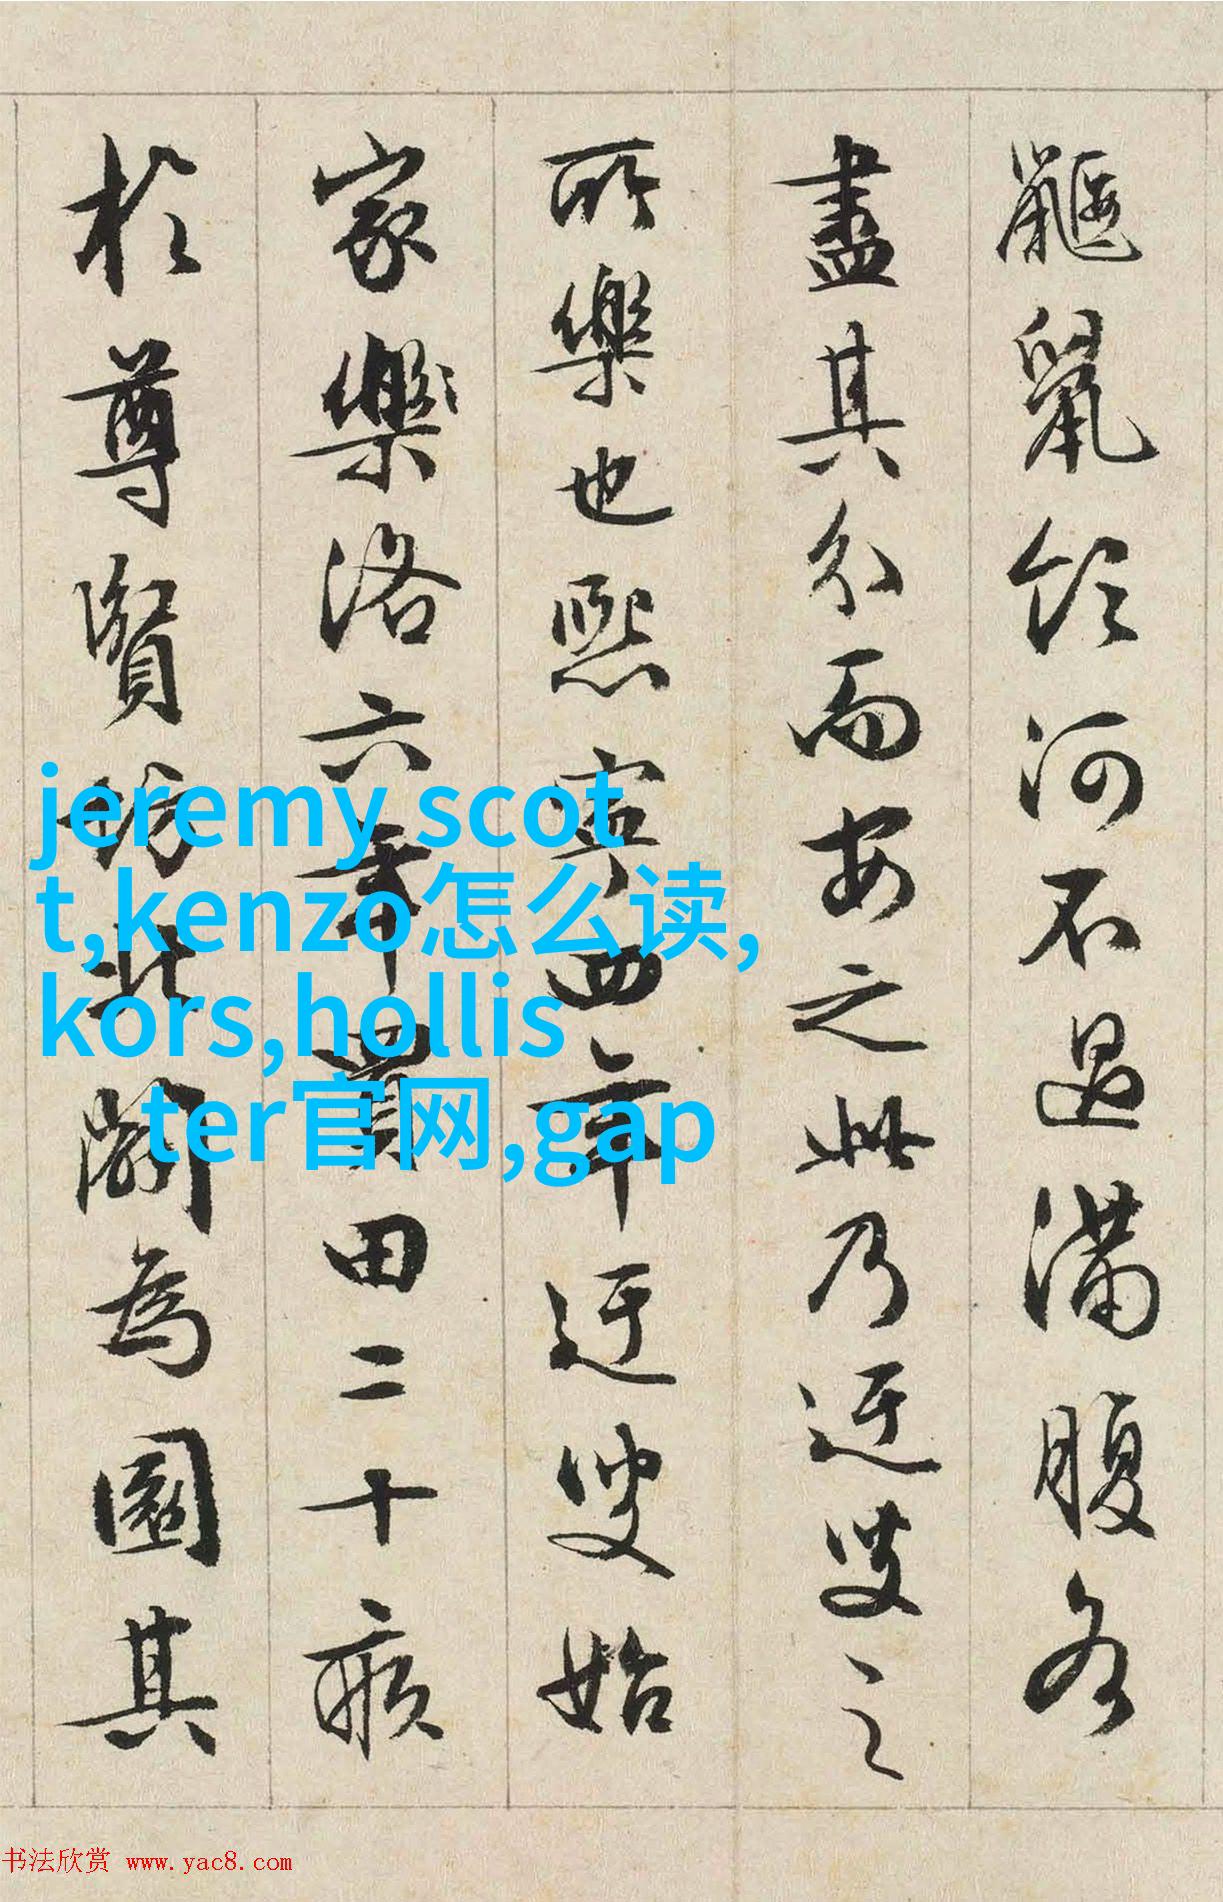 鼴鼠飲河不過滿腹各
盡其分而安之此乃迂叟之
所樂也熙寧四年迂叟始
家樂洛六年買田二十畝
於尊賢坊北闢為園其
jeremy scot
t,kenzo怎么读,
kors,hollis
ter官网,gap
书法欣赏 www.yac8.com